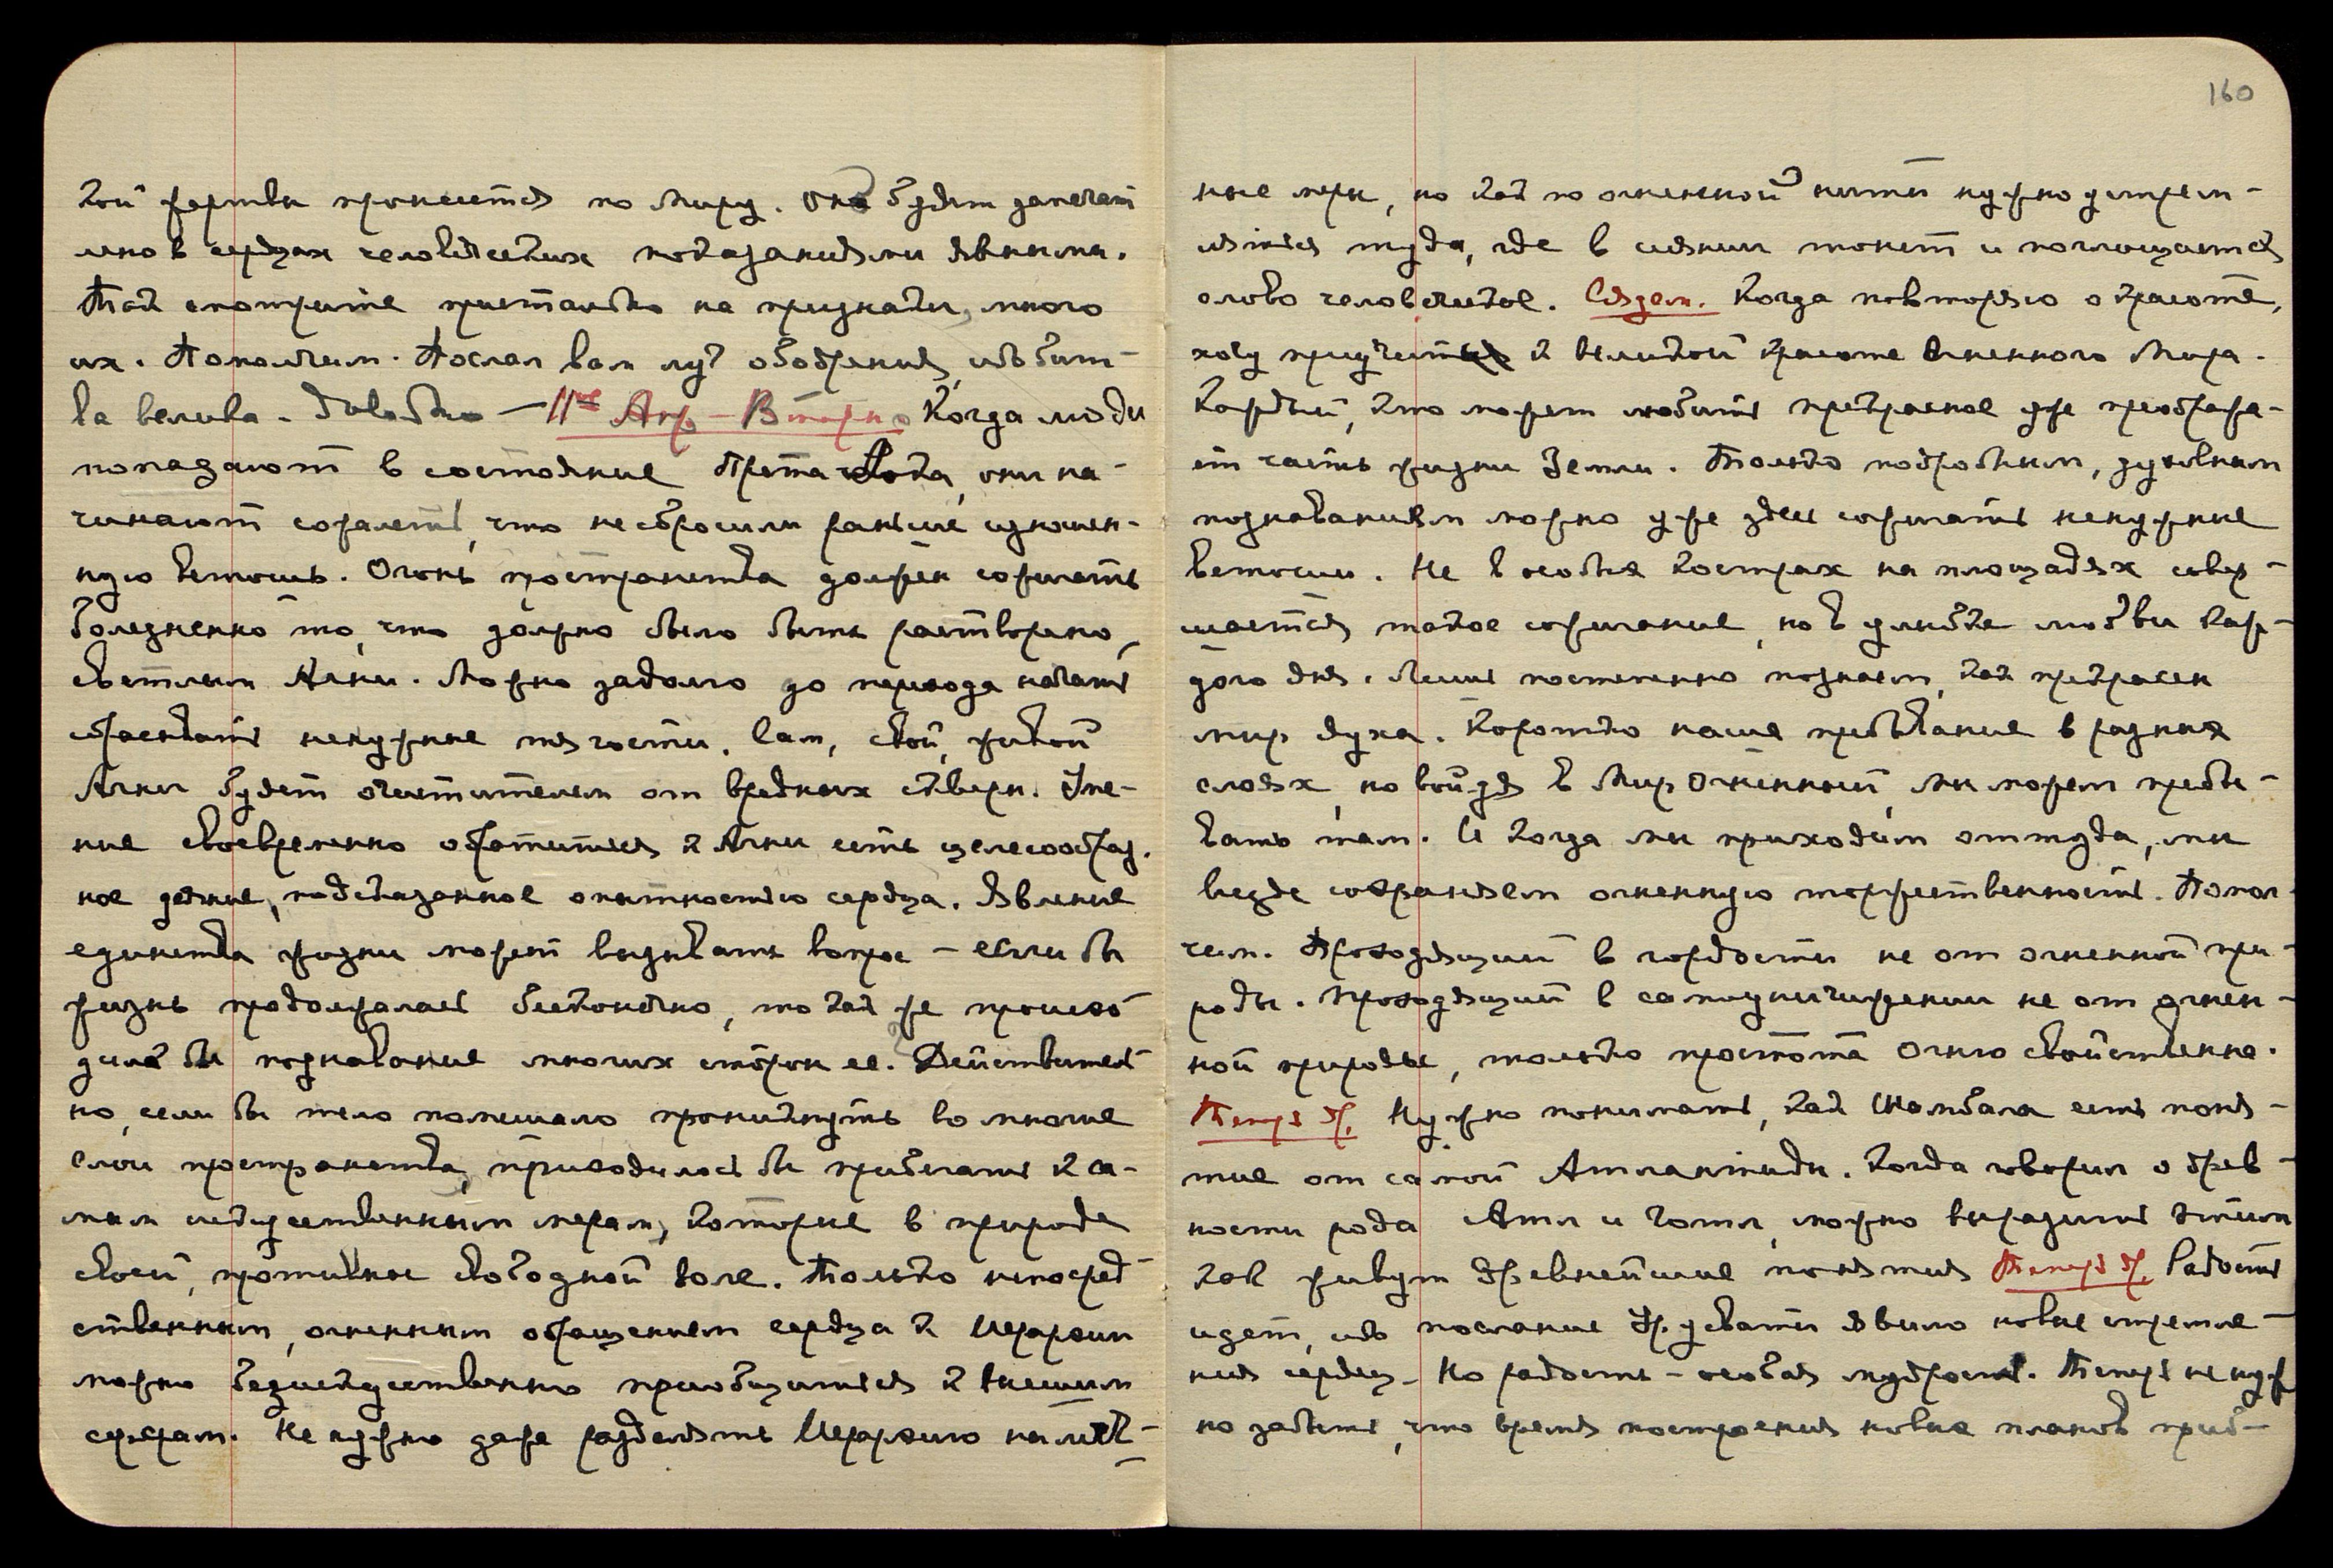 кой жертвы пронесется по миру. Она будет запечат
лена в сердцах человеческих показаниями явными.
Так смотрите пристально на признаки, много
их. Помолчим. Послал вам луч ободрения, ибо бит-
ва велика. Довольно — 11ое Апр — Вторн. Когда люди
попадают в состояние Прета Лока, они на-
чинают сожалеть, что не сбросили раньше изношен-
ную ветошь. Огонь пространства должен сжигать
болезненно то, что должно было быть растворено,
светлым Агни. Можно задолго до перехода начать
сбрасывать ненужные тягости. Сам, свой, живой
Агни будет очистителем от вредных скверн. Уме-
ние своевременно обратиться к Агни есть целесообраз.
ное деяние, подсказанное опытностью сердца. Явление
единства жизни может вызывать вопрос — если бы
жизнь продолжалась бесконечно, то как же происхо
дило бы познавание многих сторон ее. Действитель
но, если бы тело помешало проникнуть во многие
слои пространства, приходилось бы прибегать к са-
мым искусственным мерам, которые в природе
своей, противны свободной воле. Только непосред
ственным, огненным обращением сердца к Иерархии
можно безыскусственно приобщиться к высшим
сферам. Не нужно даже разделять Иерархию на мест-
160
ные меры, но как по огненной нити нужно устрем-
ляться туда, где в сиянии тонет и поглощается
слово человеческое. Сядем. Когда повторяю о красоте,
хочу приучить к великой красоте Огненного Мира.
Каждый, кто может любить прекрасное уже преображе-
ет часть жизни Земли. Только подробным, духовным
познаванием можно уже здесь сжигать ненужные
ветоши. Не в особых кострах на площадях совер-
шается такое сжигание, но в улыбке любви каж-
дого дня. Лишь постепенно познаем, как прекрасен
мир духа. Коротко наше пребывание в разных
слоях, но войдя в Мир Огненный, мы можем пребы-
вать там. И когда мы приходим оттуда, мы
везде сохраняем огненную торжественность. Помол
чим. Проходящий в гордости не от огненной при-
роды. Проходящий в самоуничижении не от огнен-
ной природы, только простота Огню свойственна.
Теперь др. Нужно понимать, как Шамбала есть поня-
тие от самой Атлантиды. Когда говорил о древ-
ности рода Атл и Готл, можно выразить этим
как живут древнейшие понятия Теперь др. Радость
идет, ибо послание Ур. Усвати явило новые стремле-
ния сердец. Но радость — особая мудрость. Теперь не нуж
но забыть, что время построения новых планов приб-